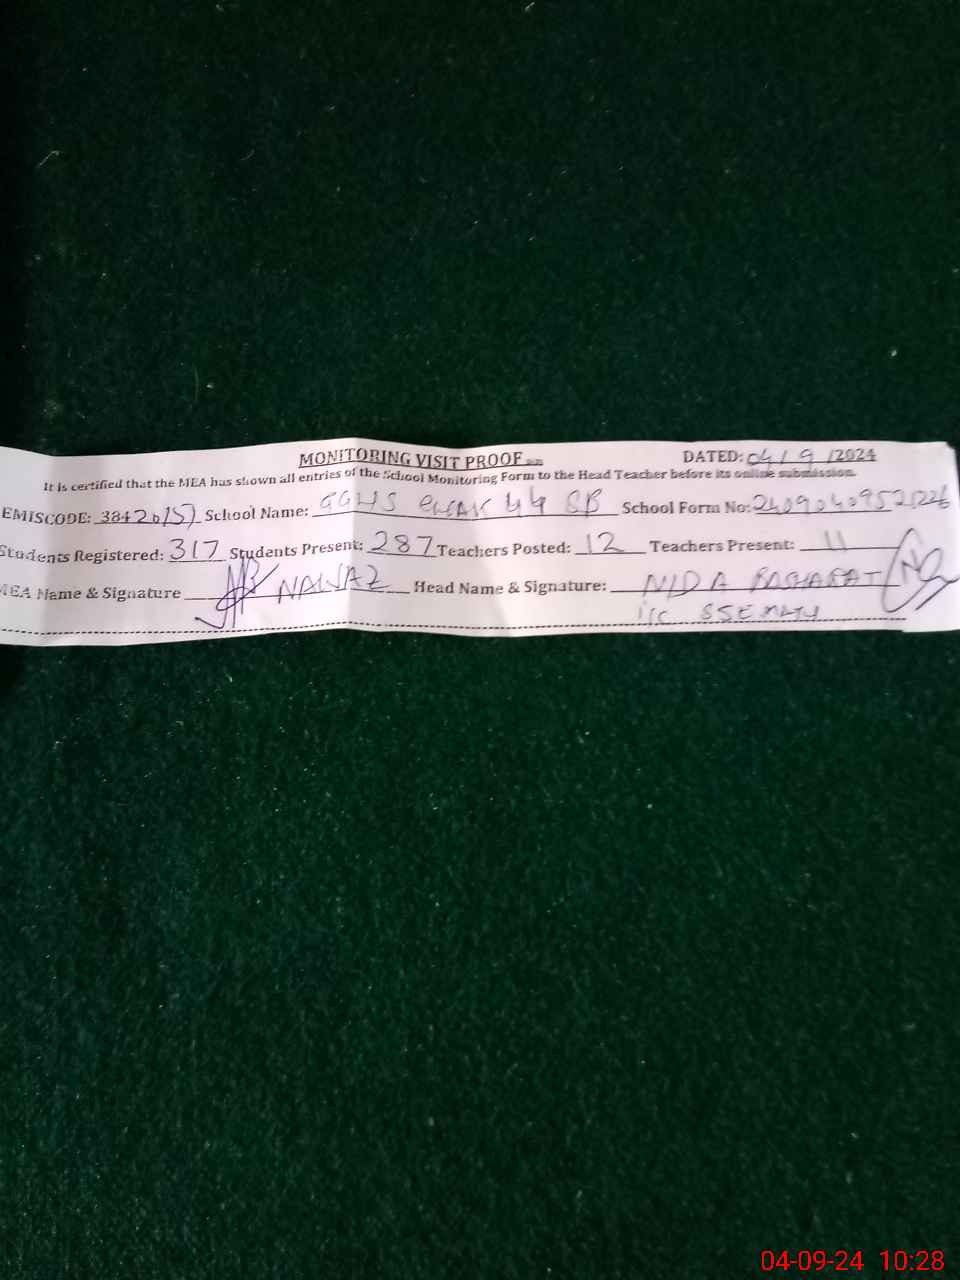 MONITORING VISIT PROOF DATED: 04/9/2024
It is certified that the MEA has shown all entries of the School Monitoring Form to the Head Teacher before its online submission.
EMISCODE: 38420157 School Name: GGHS CHAK 44 SB School Form No: 24090409521226
Students Registered: 317 Students Present: 287 Teachers Posted: 12 Teachers Present: 11
MEA Name & Signature NAWAZ Head Name & Signature: NIDA BASHARAT
I/C SSE MATH
04-09-24 10:28